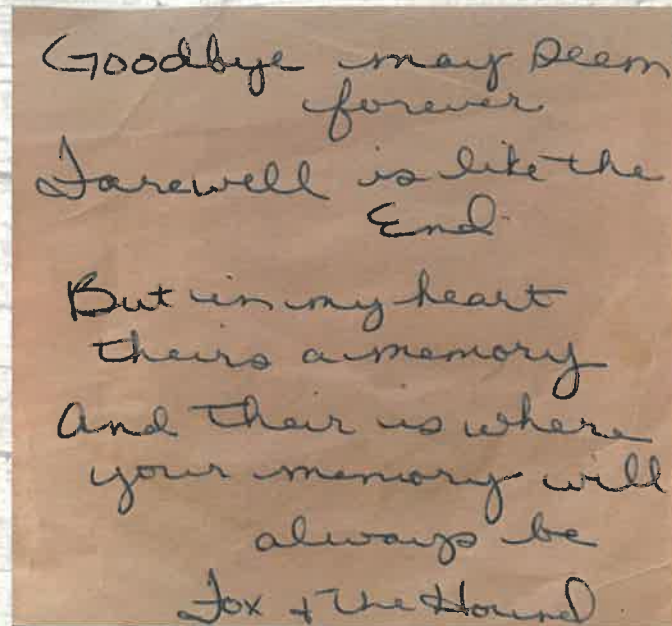 Goodbye may seem
forever
Farewell is like the
End
But in my heart
theirs a memory
And their is where
your memory will
always be
Fox + the Hound